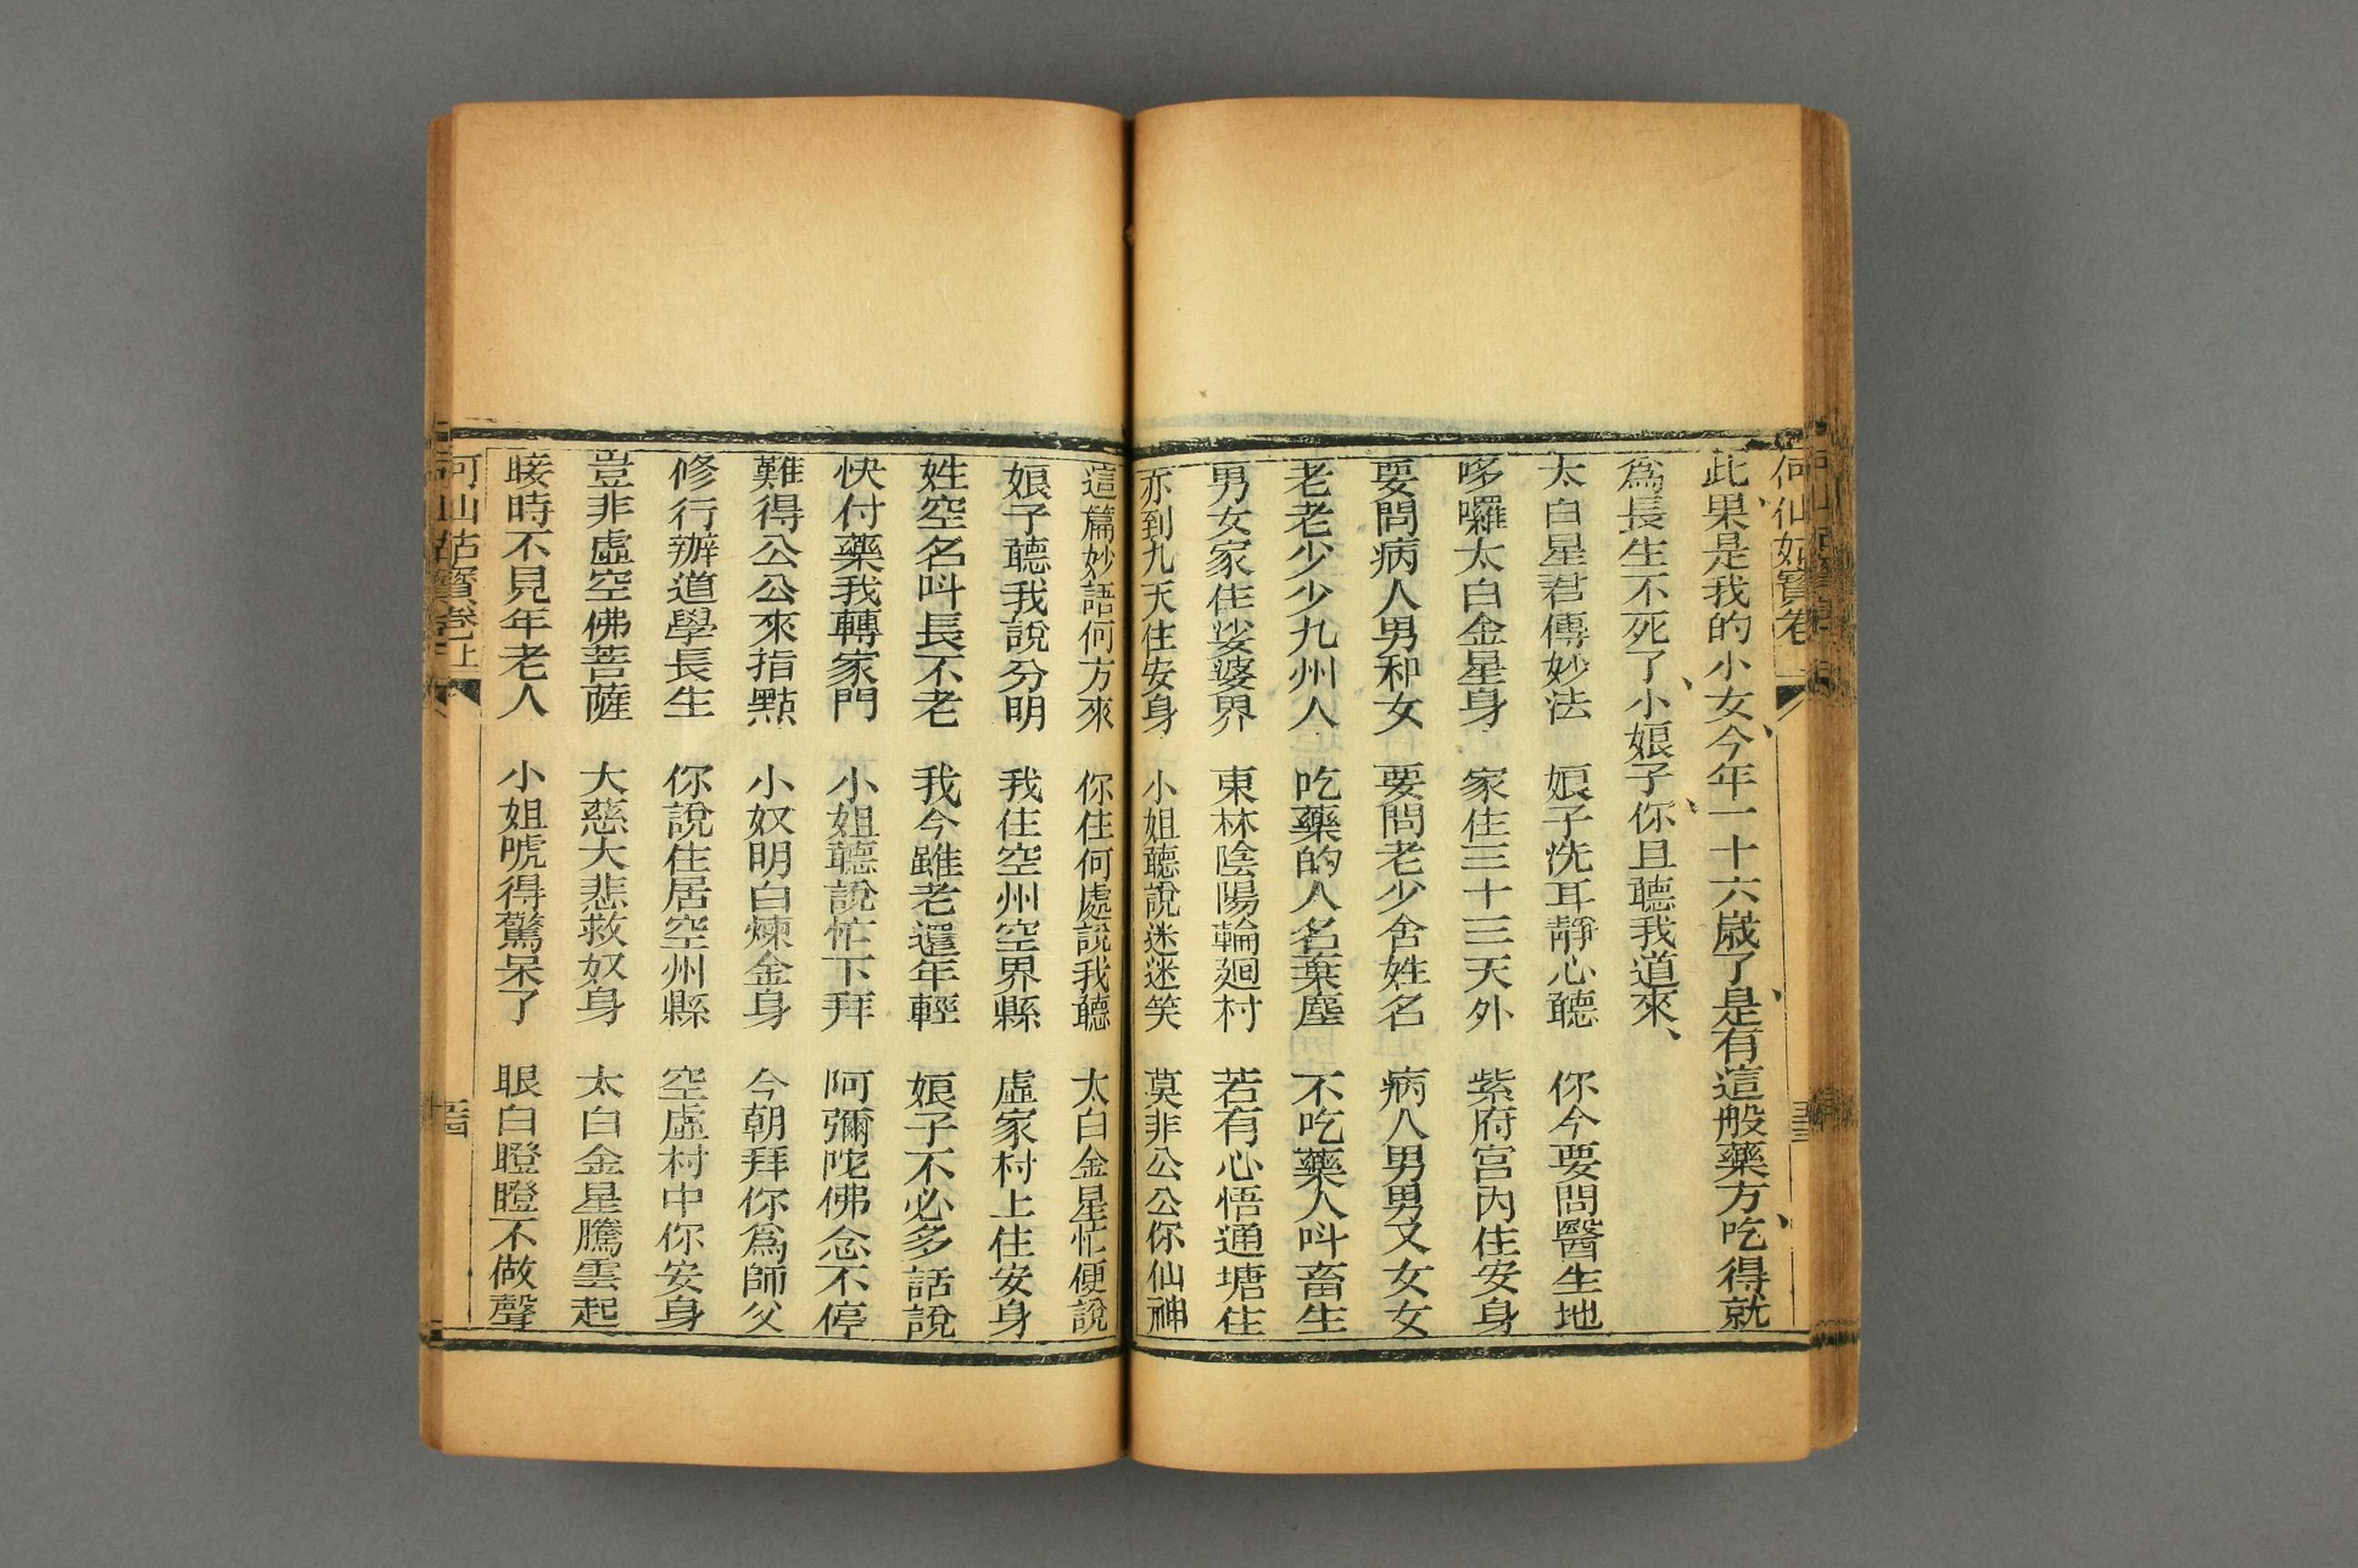 何仙姑寶卷
此、果是我的小女、今年一十六歲了、是有這般藥方、吃得就
爲長生不死了、小娘子、你且聽我道來、
太白星君傳妙法 娘子洗耳靜心聽 你今要問醫生地
哆囉太白金星身 家住三十三天外 紫府宫內住安身
要問病人男和女 要問老少舍姓名 病人男男又女女
老老少少九州人 吃藥的人名棄塵 不吃藥人呌畜生
男女家住娑婆界 東林陰陽輪廻村 若有心悟通塘住
亦到九天住安身 小姐聽說迷迷笑 莫非公公你仙神
這篇妙語何方來 你住何處說我聽 太白金星忙便說
娘子聽我說分明 我住空州空界縣 虛家村上住安身
姓空名呌長不老 我今雖老還年輕 娘子不必多話說
快付藥我轉家門 小姐聽說忙下拜 阿彌陀佛念不停
難得公公來指點 小奴明白煉金身 今朝拜你爲師父
修行辦道學長生 你說住居空州縣 空虛村中你安身
豈非虛空佛菩薩 大慈大悲救奴身 太白金星騰雲起
睖時不見年老人 小姐唬得驚呆了 眼白瞪瞪不做聲
何仙姑寶卷上